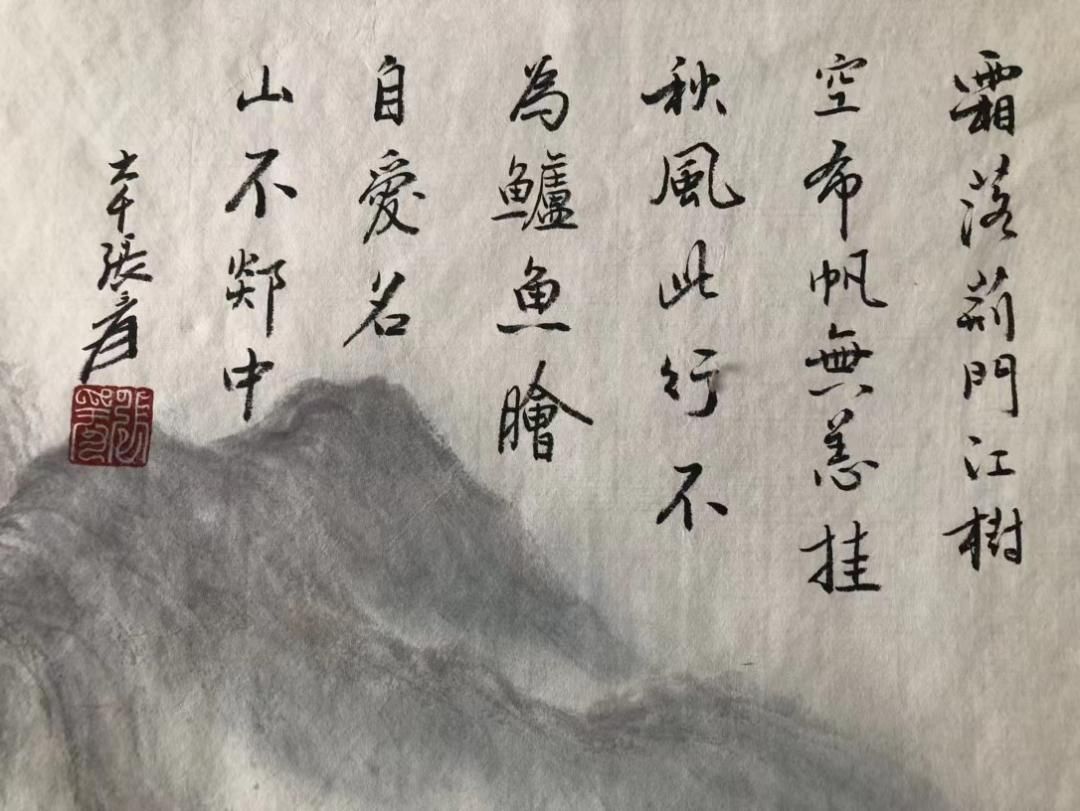 霜落荊門江樹
空希帆無恙挂
秋風此行不
為鱸魚膾
自愛名
山不郯中
大千張爰